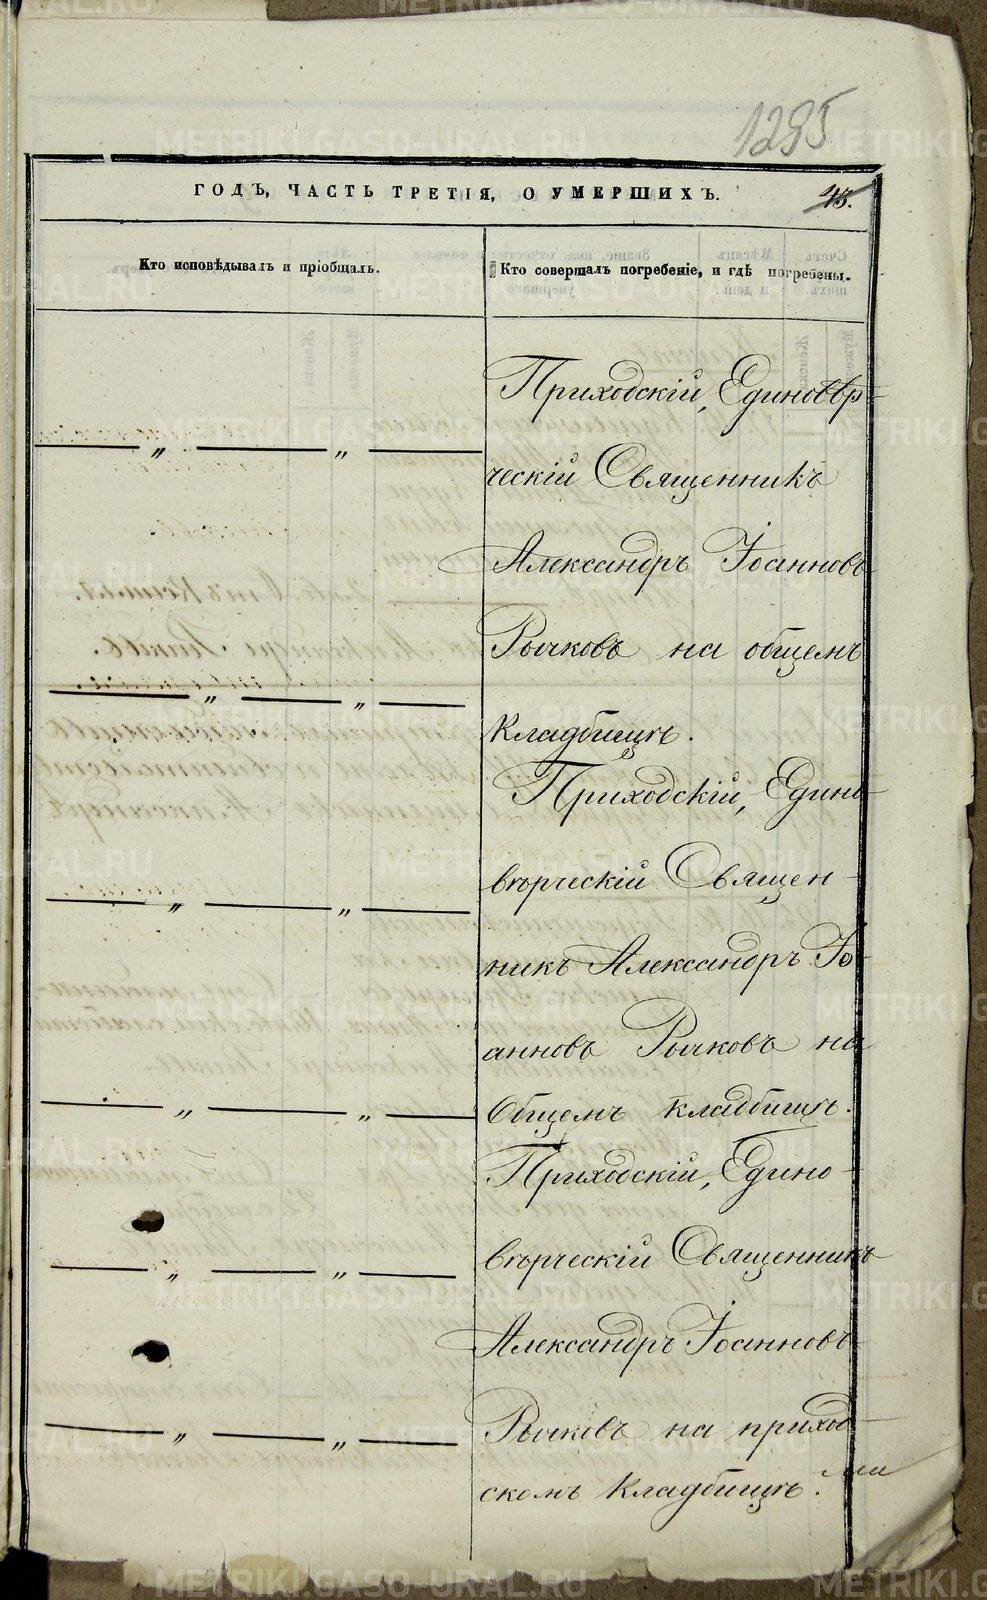 1295
ГОДЪ, ЧАСТЬ ТРЕТІЯ, О УМЕРШИХЪ.
Кто исповѣдывалъ и пріобщалъ.
Кто совершалъ погребеніе, и гдѣ погребены.
Приходскій, Единовѣр-
ческій Священникъ
Александръ Іоанновъ
Рычковъ на общемъ
кладбищѣ.
Приходскій, Едино-
вѣрческій Священ-
никъ Александръ Іо-
анновъ Рычковъ на
Общемъ кладбищѣ.
Приходскій, Едино-
вѣрческій Священникъ
Александръ Іоанновъ
Рычковъ на приход-
скомъ кладбищѣ.
METRIKI.GASO-URAL.RU